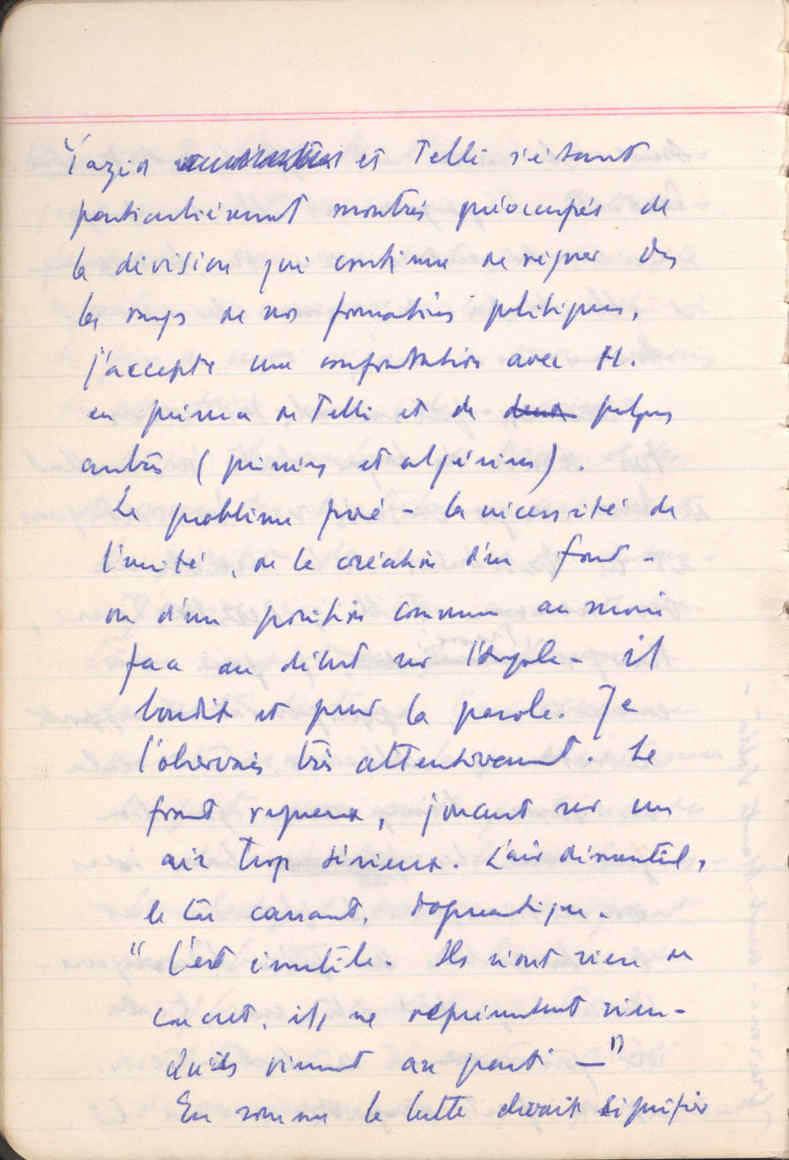 Yazid et Telli s'étant
particulièrement montrés préoccupés de
la division qui continue de régner ds
les rangs de nos formations politiques,
j'accepte une confrontation avec H.
en présence de Telli et de deux quelques
autres (guinéens et algériens).
Le problème posé - la nécessité de
l'unité, de la création d'un front -
ou d'un position commune au moins
face au début sur l'Angola - il
bondit et prend la parole. Je
l'observais très attentivement. Le
front rugueux, jouant sur un
air trop sérieux. L'air démentiel,
le ton cassant, dogmatique.
"C'est inutile. Ils n'ont rien de
concret, ils ne représentent rien -
Qu'ils viennent au parti —"
En somme la lutte devait signifier